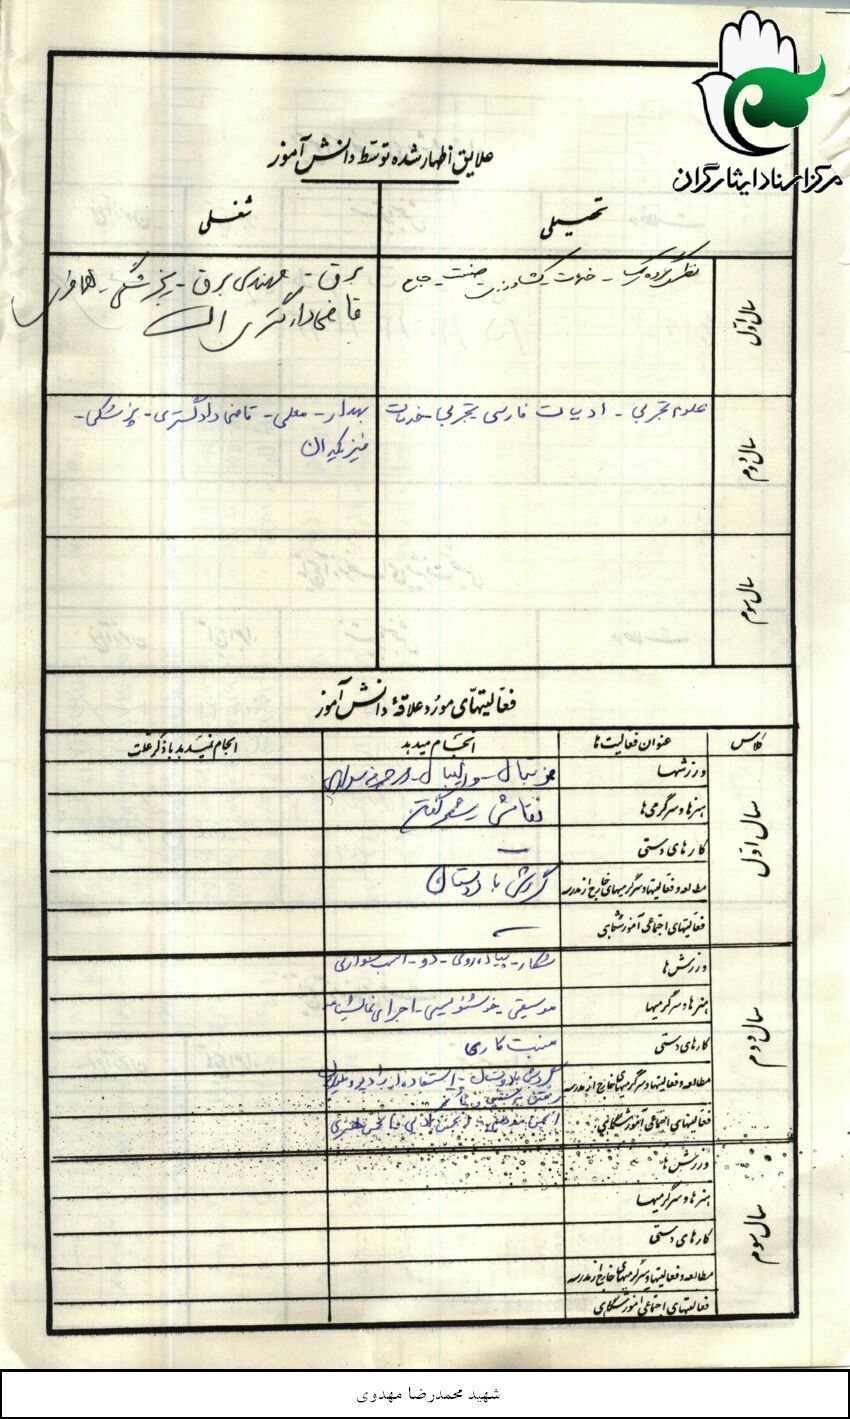 مرکز اسناد ایثارگران
علایق اظهار شده توسط دانش آموز
تحصیلی
شغلی
سال اول
خدمات - کشاورزی - صنعت - جامع
برق - مهندس برق - پزشکی -
قاضی دادگستری
سال دوم
علوم تجربی - ادبیات فارسی تجربی - خدمات
بهدار - معلمی - قاضی دادگستری - پزشکی -
فیزیکدان
سال سوم
فعالیتهای مورد علاقهٔ دانش آموز
کلاس
عنوان فعالیت ها
انجام میدهد
انجام نمیدهد با ذکر علت
سال اول
ورزشها
والیبال
هنرها و سرگرمی ها
نقاشی
کارهای دستی
-
مطالعه و فعالیتها و سرگرمیهای خارج از مدرسه
گردش با دوستان
فعالیتهای اجتماعی آموزشگاهی
-
سال دوم
ورزش ها
شکار - پیاده روی - دو - اسب سواری
هنرها و سرگرمیها
موسیقی - خوشنویسی - اجرای نمایشنامه
کارهای دستی
منبت کاری
مطالعه و فعالیتها و سرگرمیهای خارج از مدرسه
گردش با دوستان - استفاده از رادیو و تلویزیون
فعالیتهای اجتماعی آموزشگاهی
انجمن مذهبی - انجمن ادبی انجمن هنری
سال سوم
ورزش ها
هنرها و سرگرمیها
کارهای دستی
مطالعه و فعالیتها و سرگرمیهای خارج از مدرسه
فعالیتهای اجتماعی آموزشگاهی
شهید محمدرضا مهدوی